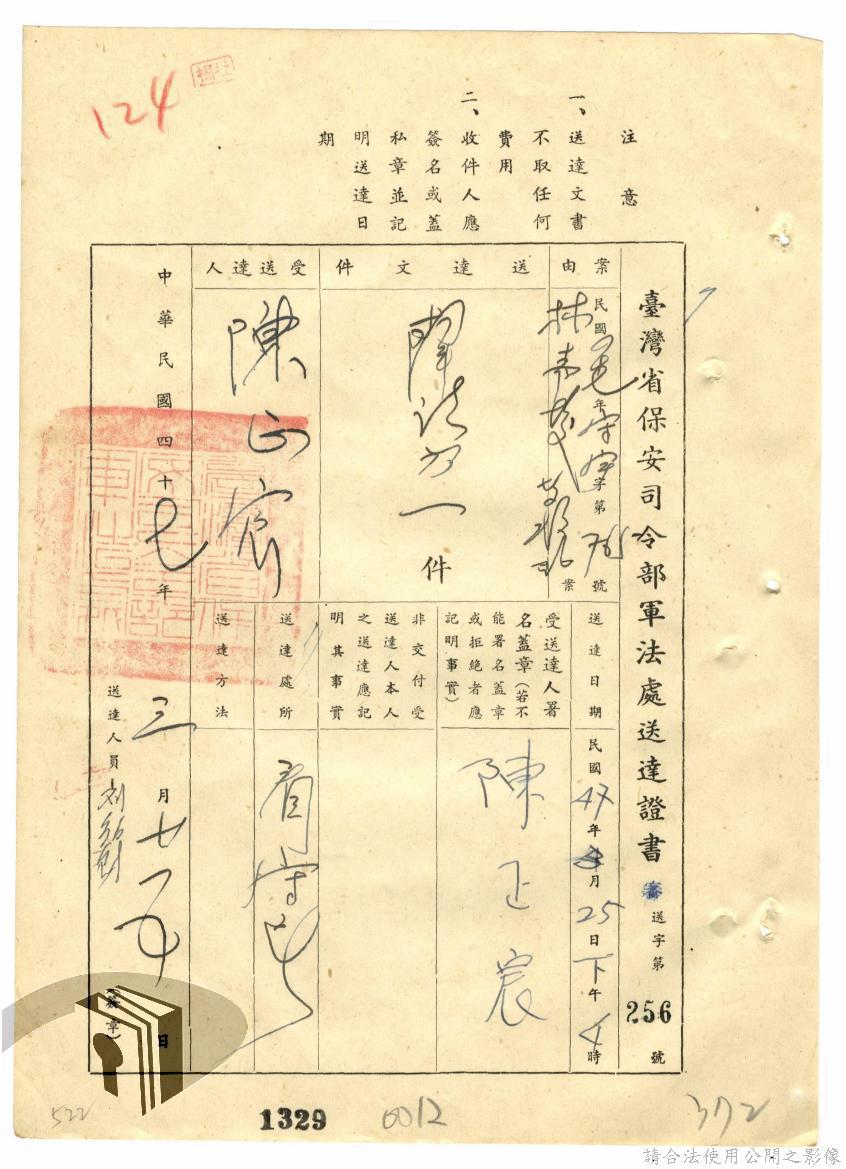 124
注意
一、送達文書
不取任何
費用
二、收件人應
簽名或蓋
私章並記
明送達日
期
臺灣省保安司令部軍法處送達證書
審送字第256號
案由
民國年字第號
案
送達文件
一件
受送達人
陳正宸
送達日期
民國47年3月25日下午4時
受送達人署
名蓋章(若不
能署名蓋章
或拒絕者應
記明事實)
陳正宸
非交付受
送達人本人
之送達應記
明其事實
送達處所
看守所
送達方法
中華民國四十七年三月廿一日
送達人員
(簽章)
522
1329
0012
372
請合法使用公開之影像